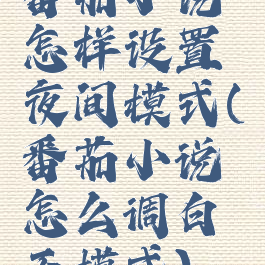 番茄小说
怎样设置
夜间模式(
番茄小说
怎么调白
天模式)